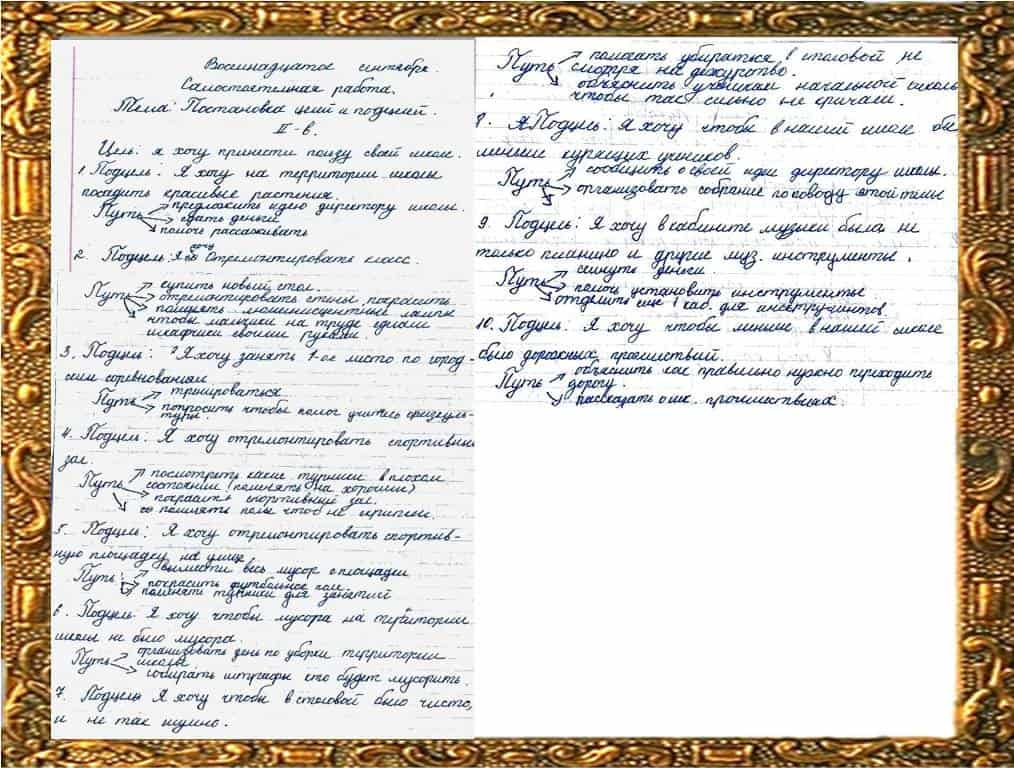 Восемнадцатое сентября.
Самостоятельная работа.
Тема: Постановка целий и подцелей.
II-в.
Цель: я хочу принести ползу своей школе.
1. Подцель: Я хочу на территории школы
посадить красивые растения.
Путь предложить идею директору школы.
сдать деньги
помочь рассаживать
2. Подцель: Я хочу отремонтировать класс.
Путь купить новый стол.
отремонтировать стены, покрасить
поменять люминисцентные лампы
чтобы мальчики на труде сделали
шкафчики своими руками.
3. Подцель: Я хочу занять 1-ое место по город-
ским соревнованиям
Путь тренироваться
попросить чтобы помог учитель физкуль-
туры.
4. Подцель: Я хочу отремонтировать спортивный
зал.
Путь посмотреть какие турники в плохом
состоянии (поменять на хорошии)
покрасить спортивный зал.
поменять полы чтоб не скрипели.
5. Подцель: Я хочу отремонтировать спортив-
ную площадку на улице
Путь: вымести весь мусор с площадки
покрасить футбольное поле.
поменять турники для занятий
6. Подцель: Я хочу чтобы мусора на територии
школы не было мусора.
Путь организовать день по уборки территории
школы
собирать штрафы кто будет мусорить.
7. Подцель Я хочу чтобы в столовой было чисто,
и не так шумно.
Путь помогать убираться в столовой не
смотря на дежурство.
объяснить ученикам начальной школы
чтобы так сильно не кричали.
8. Подцель: Я хочу чтобы в нашей школе бы
меньше курящих учеников.
Путь сообщить о своей идеи директору школы.
организовать собрание по поводу этой темы
9. Подцель: Я хочу в кабинете музыки была не
только пианино и другие муз. инструменты.
Путь скинуть деньги.
помочь установить инструменты
отделить ещё 1 каб. для инструментов.
10. Подцель: Я хочу чтобы меньше в нашей школе
было дорожных проишествий.
Путь объяснить как правильно нужно переходить
дорогу.
рассказать о проишествиях.